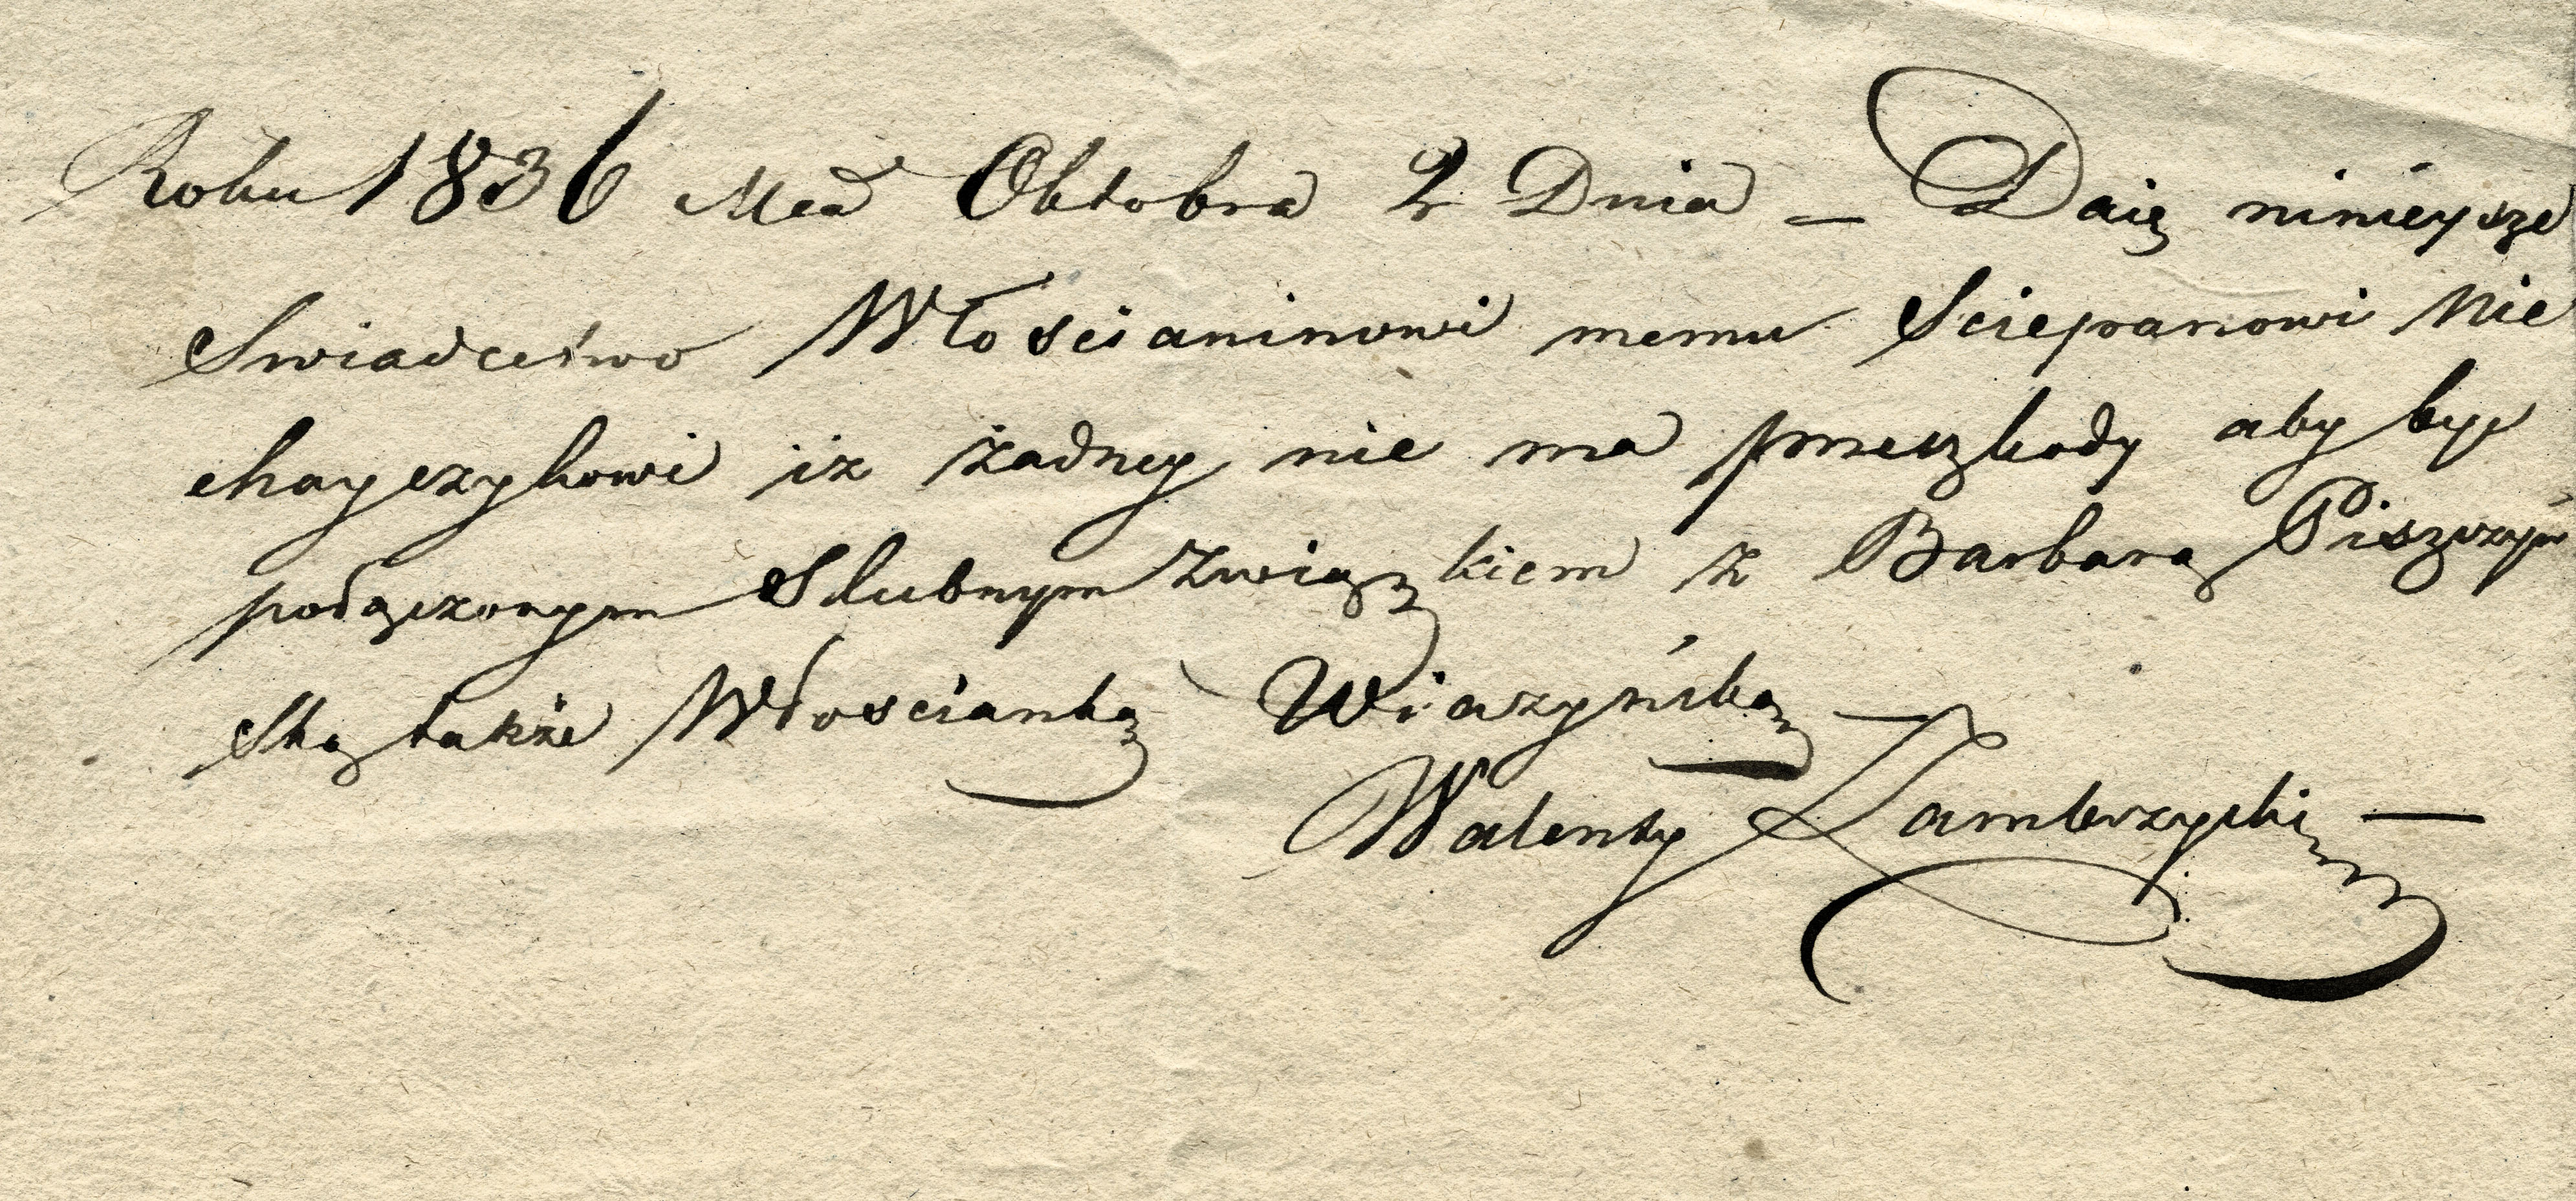 Roku 1836 Mca Oktobra 2 Dnia — Daię ninieysze
Swiadcetwo Włościaninowi memu Sciepanowi Nie
chayczykowi iż żadney nie ma przeszkody aby być
połączonym Slubnym Związkiem z Barbarą Piszczyń
Ską także Włościanką Wiazyńską —
Walenty Zambrzycki —